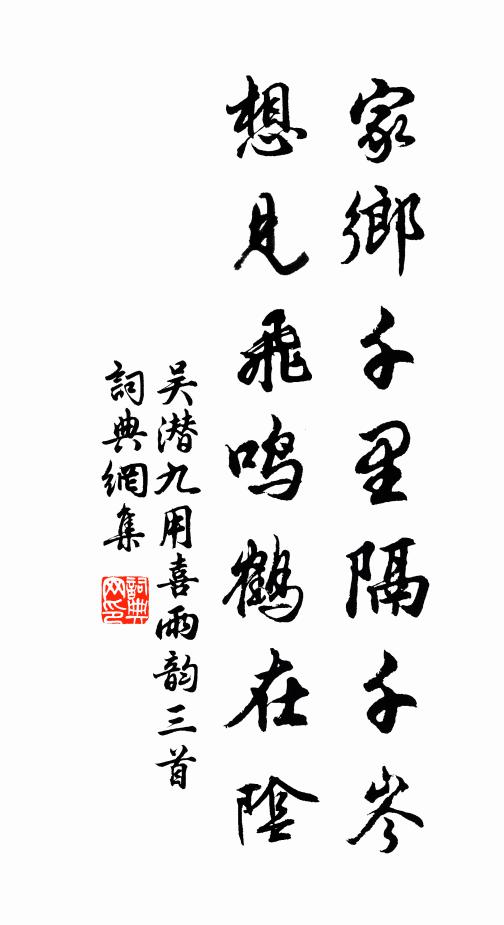 家鄉千里隔千岑
想見飛鳴鶴在陰
吴潛九用喜雨韵三首
詞典網集
詞典網印